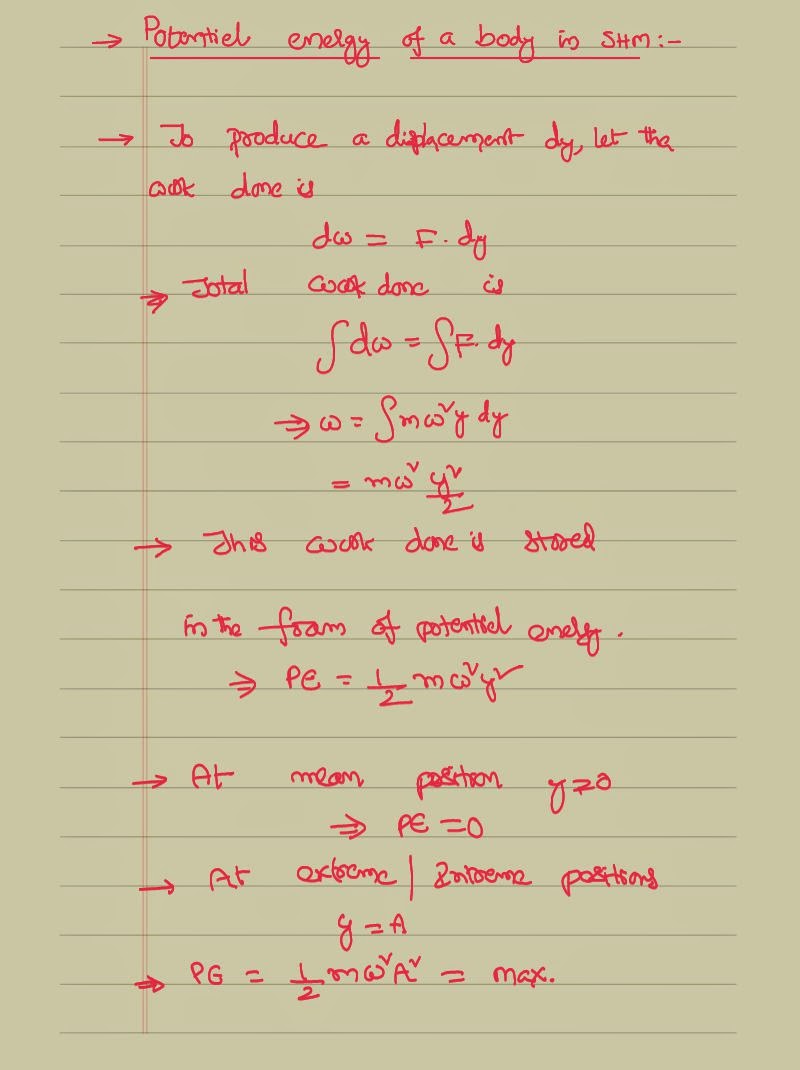 → Potentiel energy of a body in SHM:-
→ To produce a displacement dy, let the
work done is
dω = F. dy
⇒ Total work done is
∫dω = ∫F. dy
⇒ ω = ∫mω²y dy
= mω² y²/2
→ This work done is stored
in the form of potential energy.
⇒ PE = 1/2 mω²y²
→ At mean position y=0
⇒ PE =0
→ At extreme | positions
y = A
⇒ PE = 1/2 mω²A² = max.